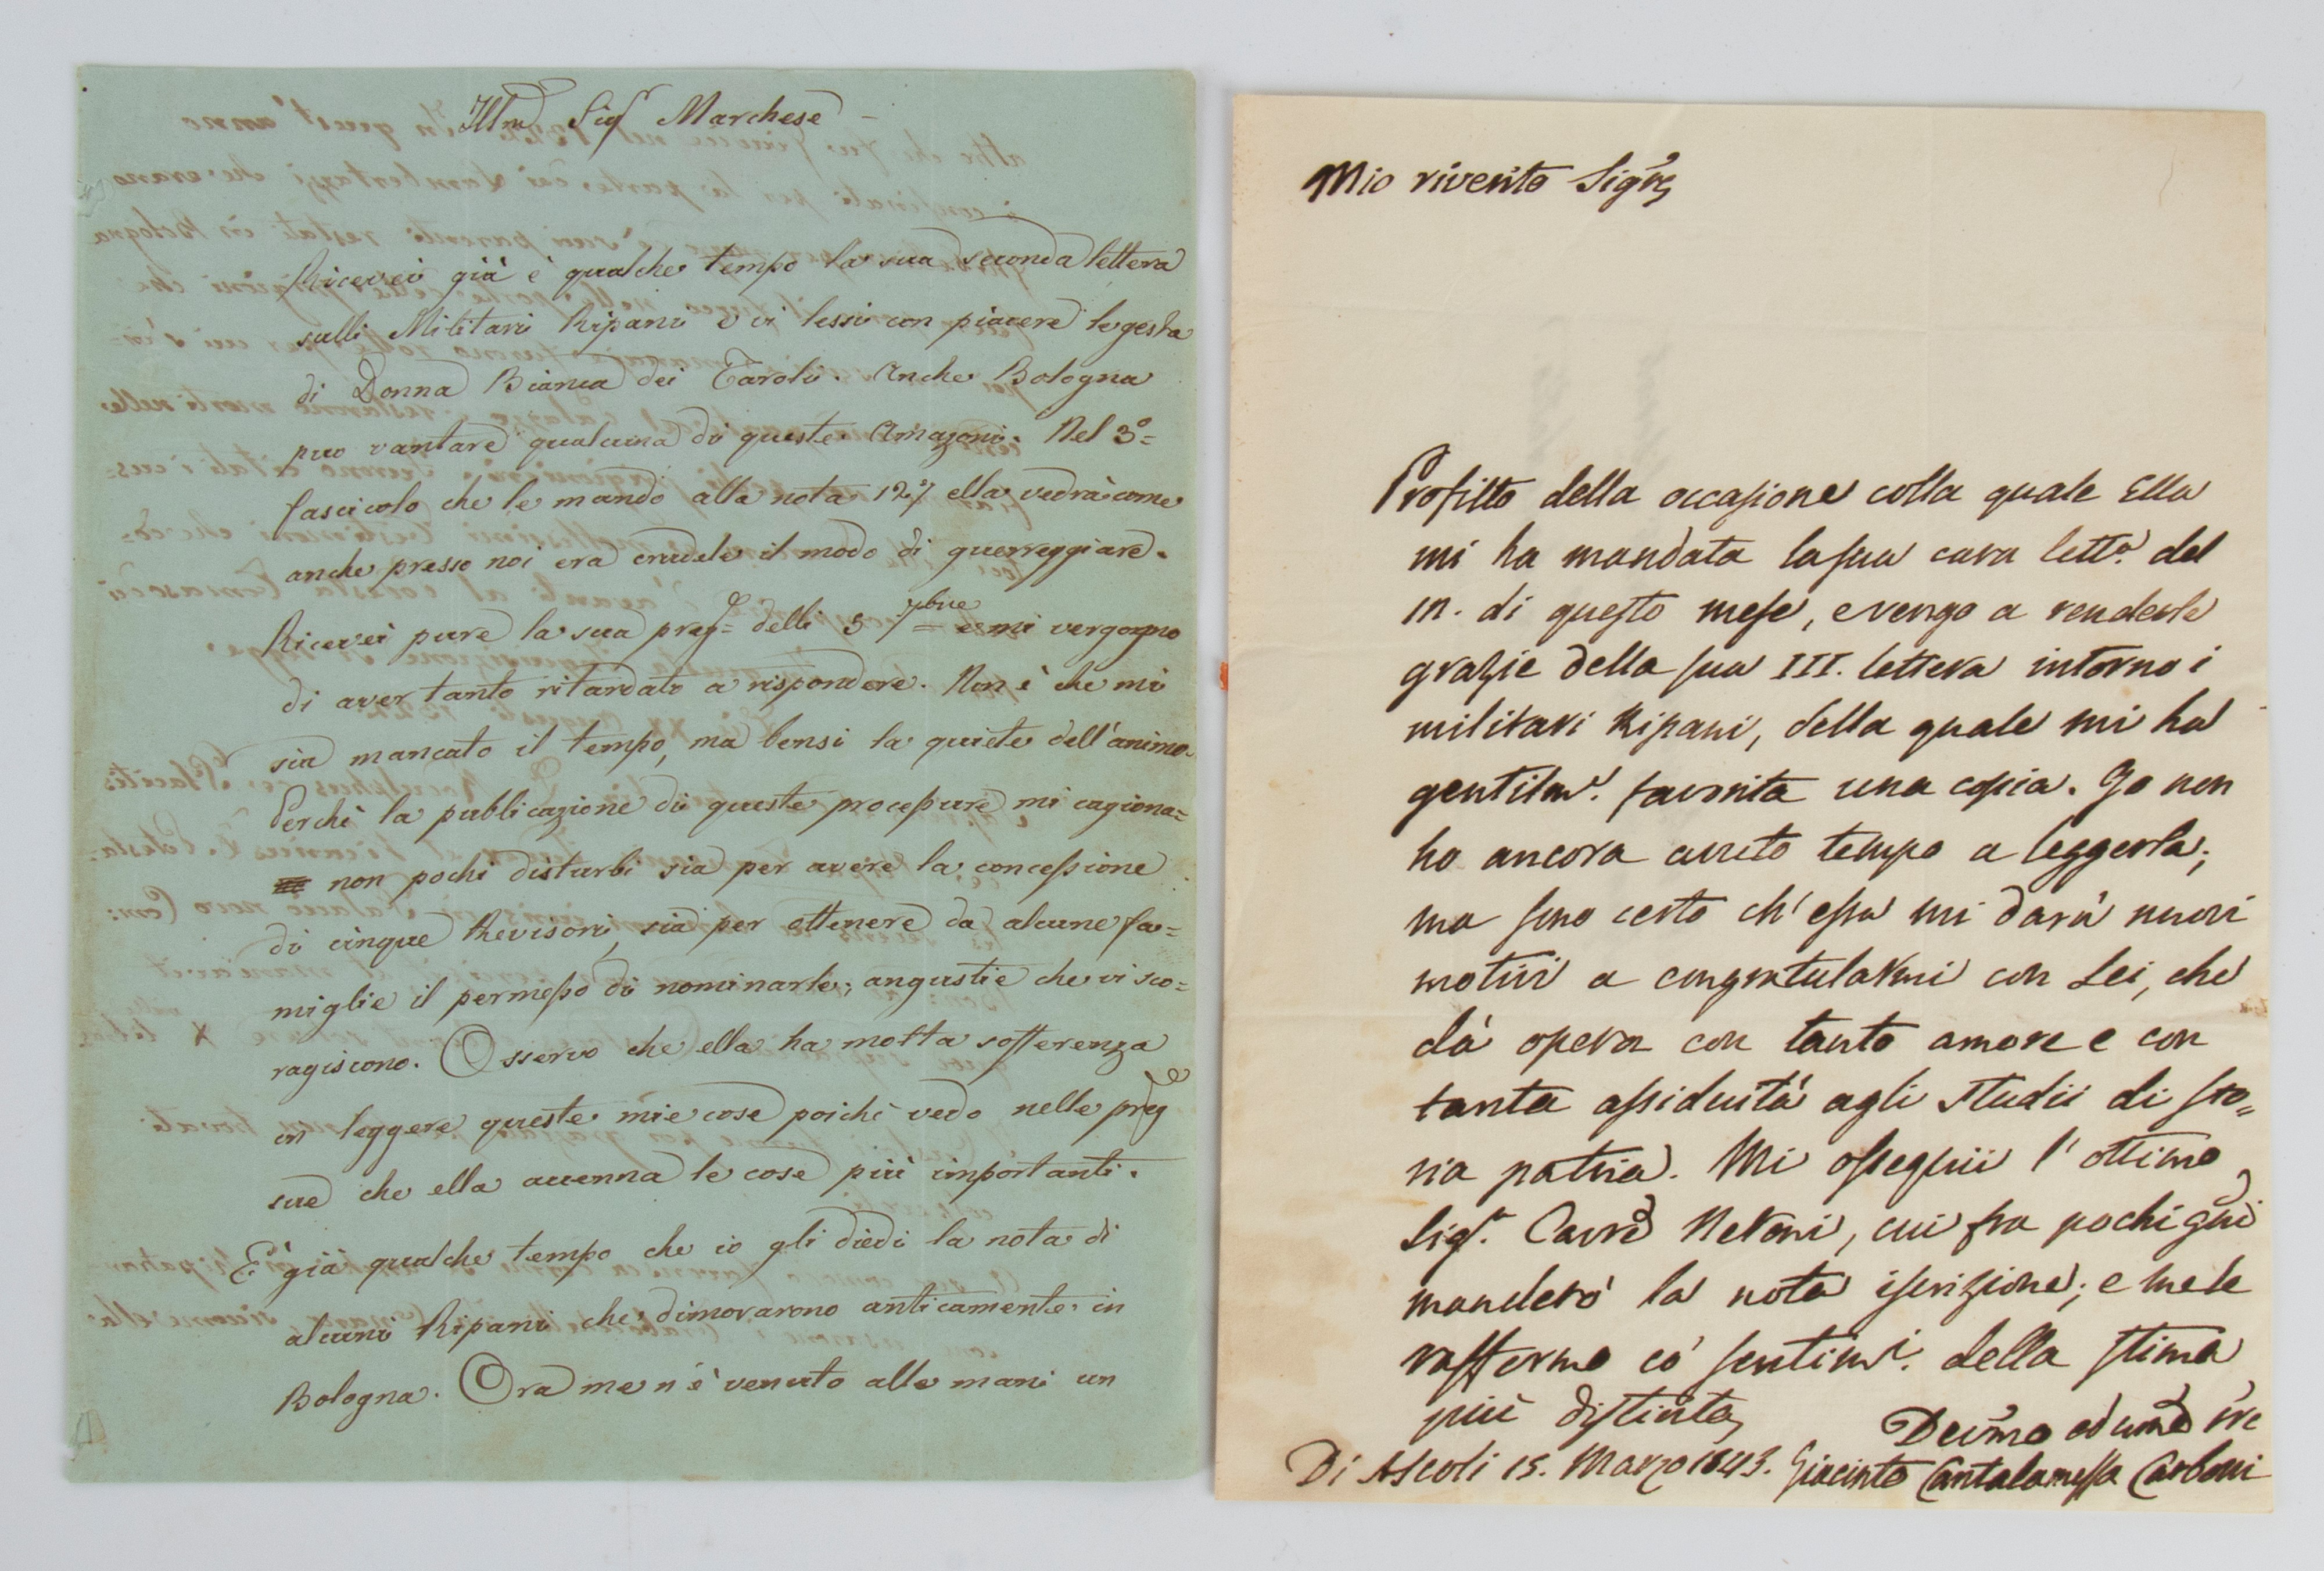 Illmo Sigr Marchese
Ricevei già è qualche tempo la sua seconda lettera
sulli Militari Ripani e vi lessi con piacere le gesta
di Donna Bianca dei Taroli. Anche Bologna
puo vantare qualcuna di queste Amazoni. Nel 3°=
fascicolo che le mando alla nota 127 ella vedrà come
anche presso noi era crudele il modo di guerreggiare.
Ricevei pure la sua preg= delli 5 7bre e mi vergogno
di aver tanto ritardato a rispondere. Non è che mi
sia mancato il tempo, ma bensi la quiete dell'animo.
Perchè la pubblicazione di queste procesure mi cagiona=
non pochi disturbi sia per avere la concessione
di cinque Revisori, sia per ottenere da alcune fa=
miglie il permesso di nominarle; angustie che vi sco=
ragiscono. Osservo che ella ha molta sofferenza
in leggere queste mie cose poichè vedo nelle preg
sue che ella accenna le cose più importanti.
E' già qualche tempo che io gli diedi la nota di
alcuni Ripani che dimorarono anticamente in
Bologna. Ora me n'è venuto alle mani un
Mio riverito Sigre
Profitto della occasione colla quale Ella
mi ha mandata la sua cara letta. del
di questo mese, e vengo a renderle
grazie della sua III. lettera intorno i
militari Ripani, della quale mi ha
gentilmt. favorita una copia. Io non
ho ancora avuto tempo a leggerla;
ma sono certo ch'essa mi darà nuovi
motivi a congratularmi con Lei, che
dà opera con tanto amore e con
tanta assiduità agli studii di sto=
ria patria. Mi ossequii l'ottimo
Sigr. Cavre Neroni, cui fra pochi gni
manderò la nota iscrizione; e me le
raffermo co' sentimi. della stima
più distinta
Devmo ed umo sre
Di Ascoli 15. Marzo 1843. Giacinto Cantalamessa Carboni